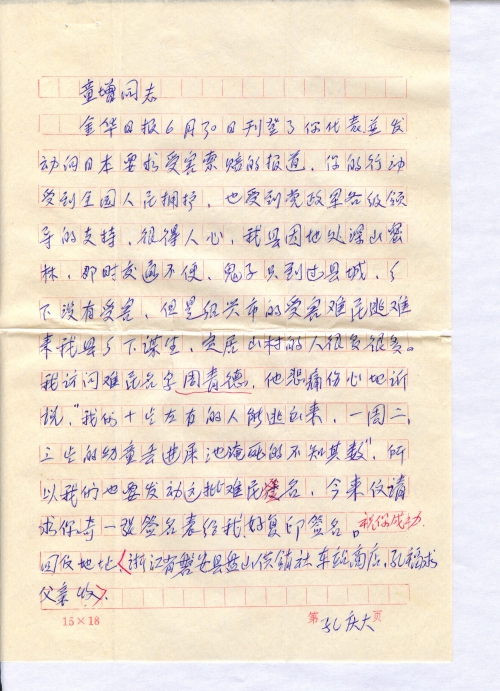 童增同志
金华日报6月30日刊登了你代表並发
动向日本要求受害索赔的报道,你的行动
受到全国人民拥护,也受到党政军各级领
导的支持,很得人心,我县因地处深山密
林,那时交通不便,鬼子只到过县城,乡
下没有受害,但是绍兴市的受害难民逃难
来我县乡下谋生,定居山村的人很多很多。
我访问难民名字周青德,他悲痛伤心地诉
说,"我们十岁左右的人能逃出来,一周二、
三岁的幼童丢进尿池淹死的不知其数",所
以我们也要发动这批难民签名,今来仅请
求你寄一张签名表给我,好复印签名。祝你成功.
回信地址<浙江省磐安县盘山供销社车站商店,孔
父亲收>.
15×18
第 页
孔庆大